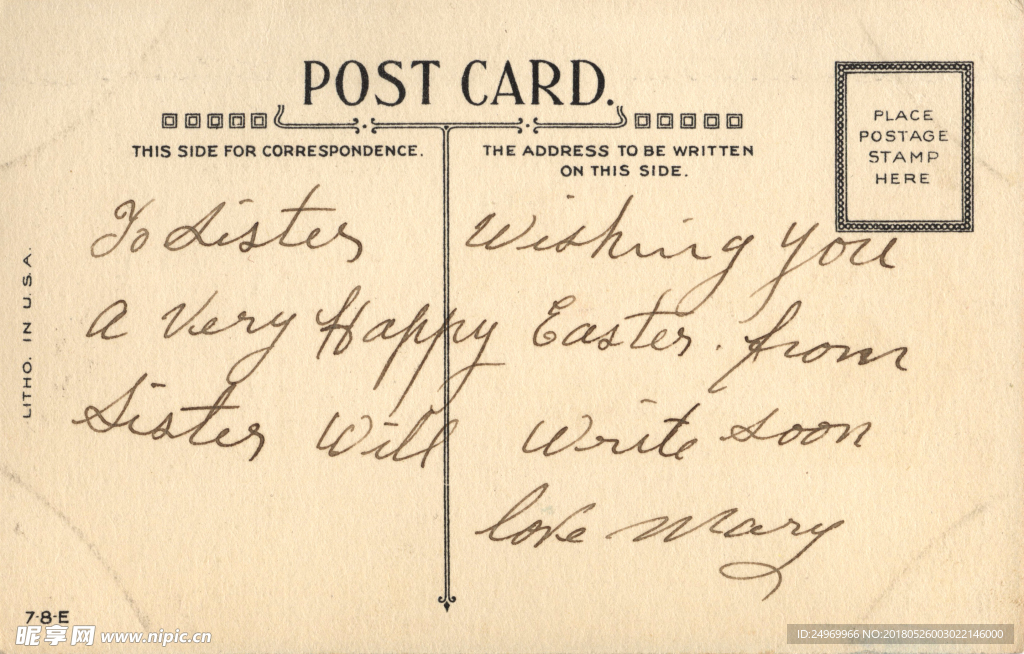 POST CARD.
THIS SIDE FOR CORRESPONDENCE.
THE ADDRESS TO BE WRITTEN
ON THIS SIDE.
PLACE
POSTAGE
STAMP
HERE
To Sister Wishing you
a Very Happy Easter. from
Sister Will write soon
love Mary
LITHO. IN U.S.A.
7-8-E
昵享网 www.nipic.cn
ID:24969966 NO:20180526003022146000